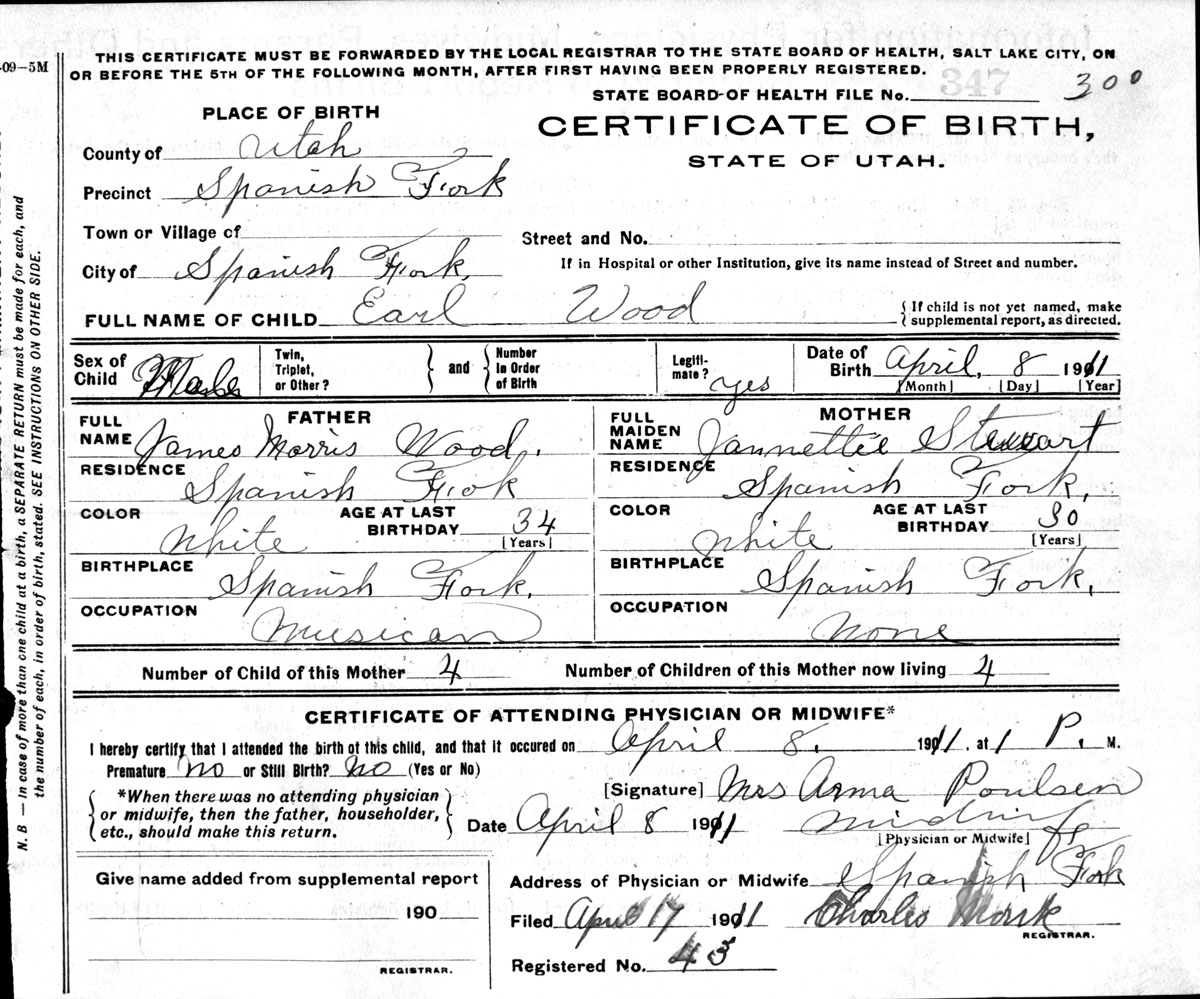 -09-5M
THIS CERTIFICATE MUST BE FORWARDED BY THE LOCAL REGISTRAR TO THE STATE BOARD OF HEALTH, SALT LAKE CITY, ON
OR BEFORE THE 5TH OF THE FOLLOWING MONTH, AFTER FIRST HAVING BEEN PROPERLY REGISTERED.
347
STATE BOARD OF HEALTH FILE No. 300
PLACE OF BIRTH
CERTIFICATE OF BIRTH,
STATE OF UTAH.
County of Utah
Precinct Spanish Fork
Town or Village of
Street and No.
City of Spanish Fork.
If in Hospital or other Institution, give its name instead of Street and number.
FULL NAME OF CHILD Earl Wood
{If child is not yet named, make
supplemental report, as directed.
Sex of Child Male
Twin, Triplet, or Other? } and { Number In Order of Birth
Legiti-mate? yes
Date of Birth April, 8 1911
[Month] [Day] [Year]
FATHER
FULL NAME James Morris Wood.
RESIDENCE Spanish Fok
COLOR White AGE AT LAST BIRTHDAY 34
[Years]
BIRTHPLACE Spanish Fork.
OCCUPATION Musican
MOTHER
FULL MAIDEN NAME Jannettie Stewart
RESIDENCE Spanish Fork,
COLOR White AGE AT LAST BIRTHDAY 30
[Years]
BIRTHPLACE Spanish Fork,
OCCUPATION None
Number of Child of this Mother 4 Number of Children of this Mother now living 4
CERTIFICATE OF ATTENDING PHYSICIAN OR MIDWIFE*
I hereby certify that I attended the birth ot this child, and that it occured on April 8. 1911. at 1 P. M.
Premature No or Still Birth? No (Yes or No)
*When there was no attending physician
or midwife, then the father, householder,
etc., should make this return.
[Signature] Mrs Arma Poulsen
Date April 8 1911 midwife
[Physician or Midwife]
Give name added from supplemental report
190
REGISTRAR.
Address of Physician or Midwife Spanish Fork
Filed April 17 1911 Charles Monk
REGISTRAR.
Registered No. 43
N. B — In case of more than one child at a birth, a SEPARATE RETURN must be made for each, and
the number of each, in order of birth, stated. SEE INSTRUCTIONS ON OTHER SIDE.